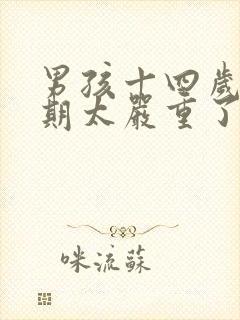 男孩十四歲
期太嚴重了
咪流蘇